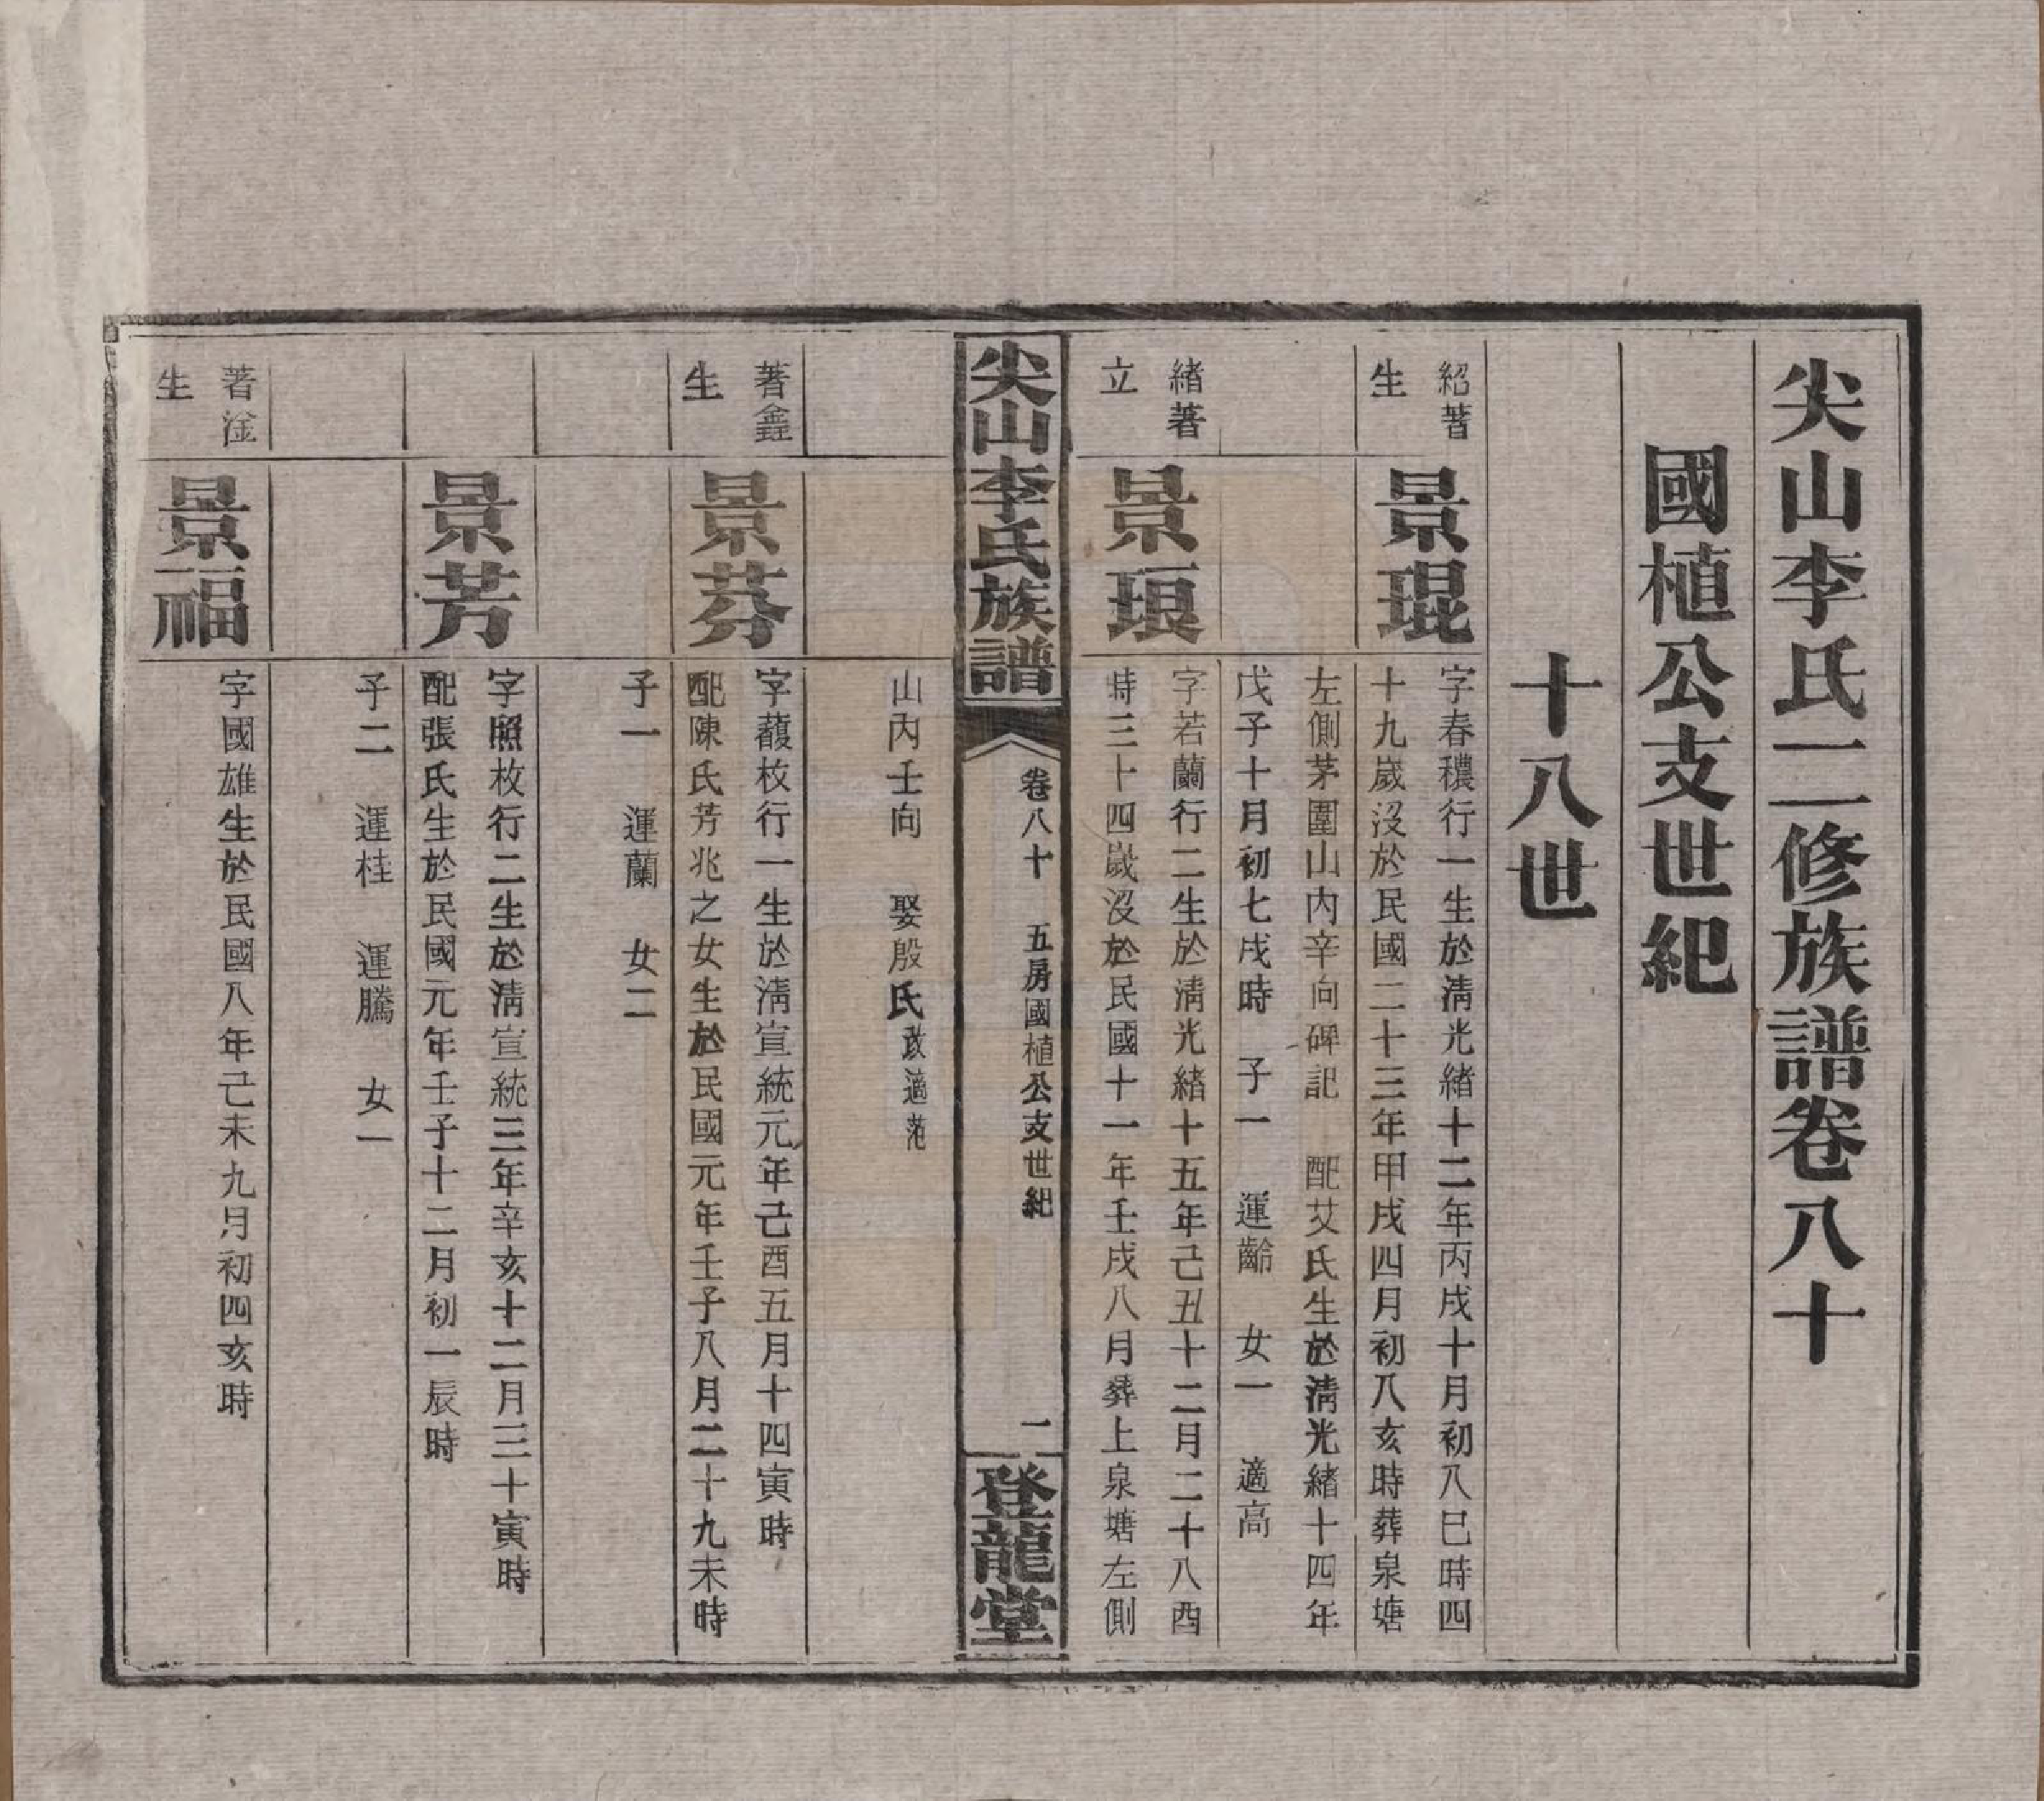 尖山李氏二修族譜卷八十
國植公支世紀
十八世
紹著
生
景琨
字春穠行一生於淸光緒十二年丙戌十月初八巳時四
十九歲沒於民國二十三年甲戌四月初八亥時葬泉塘
左側茅圍山內辛向碑記 配艾氏生於淸光緒十四年
戊子十月初七戌時 子一 運齡 女一 適高
緒著
立
景琅
字若蘭行二生於淸光緒十五年己丑十二月二十八酉
時三十四歲沒於民國十一年壬戌八月葬上泉塘左側
尖山李氏族譜
卷八十 五房國植公支世紀
一
登龍堂
山丙壬向 娶殷氏改適范
著鑫
生
景芬
字馥枚行一生於淸宣統元年己酉五月十四寅時
配陳氏芳兆之女生於民國元年壬子八月二十九未時
子一 運蘭 女二
景芳
字照枚行二生於淸宣統三年辛亥十二月三十寅時
配張氏生於民國元年壬子十二月初一辰時
子二 運桂 運騰 女一
著淦
生
景福
字國雄生於民國八年己未九月初四亥時